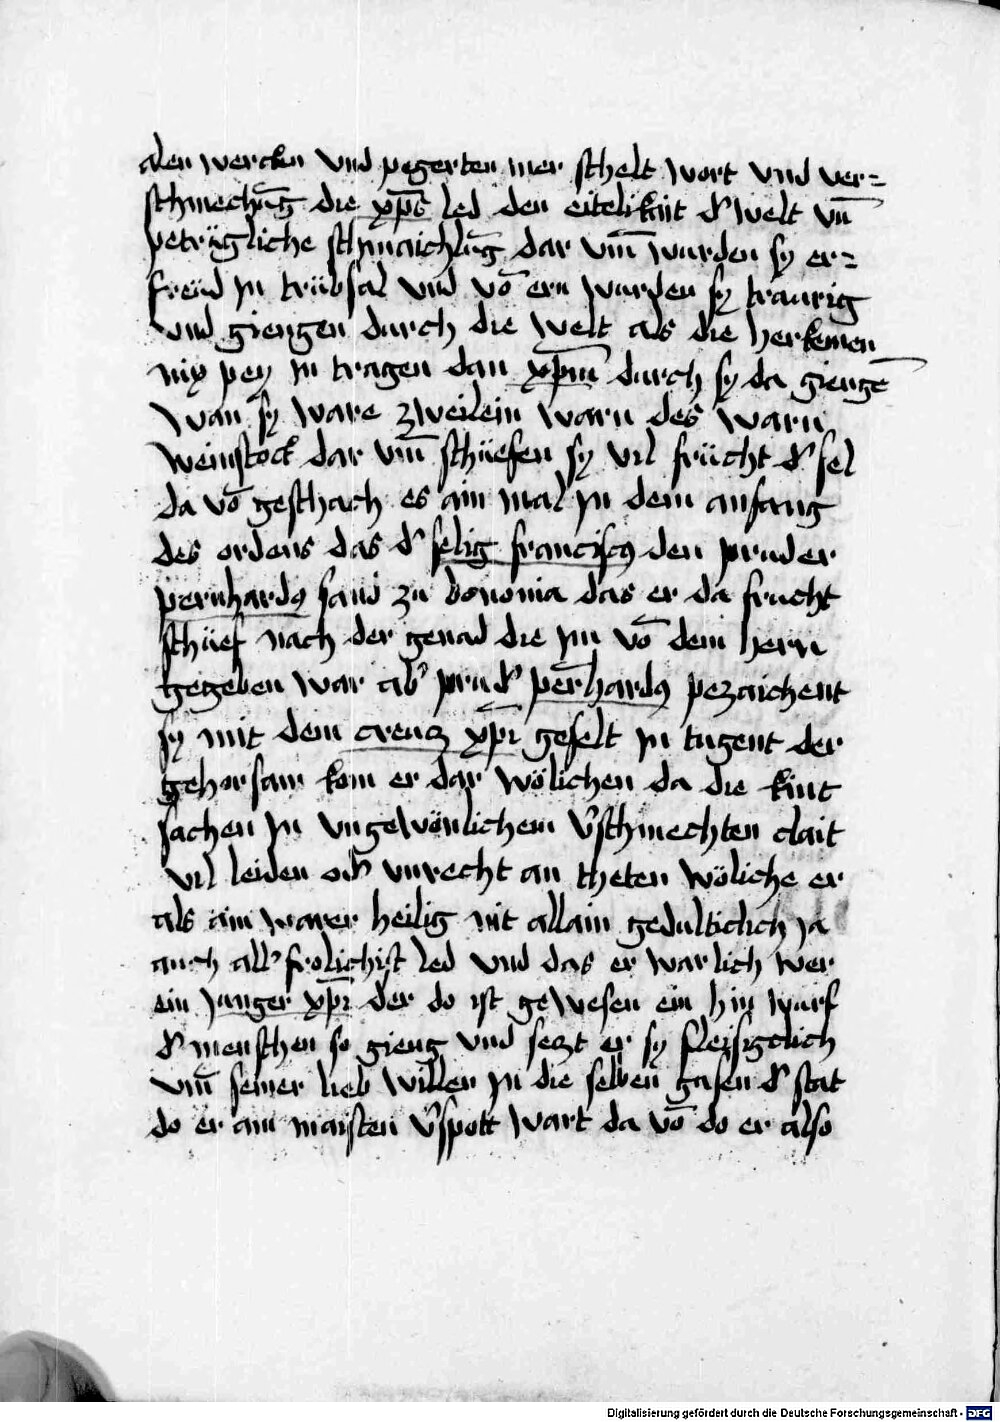 alen wercken vnd pegerten mer schelt wort vnd ver=
schmechūg die xp̄s led den eitelikait d' welt vn̄
petrügliche schmaichlūg dar vm̄ wurden sy er=
freud jn trübsal vnd vō ern wurden sy traurig
vnd giengen durch die welt als die herkemen
nix pey jn tragen dan xp̄m durch sy da giengē
wan sy ware zweilein warn des warn
weinstock dar vm̄ schüefen sy vil frücht d' sel
da vō geschach es ain mal jn dem anfang
des ordens das d' selig franciscꝰ den pruder
pernhardꝰ sand zu bononia das er da frucht
schüef nach der genad die jm vō dem hern
gegeben war ab' prud' perhardꝰ pezaichent
sy mit dem creucz xp̄i geselt jn tugent der
gehorsam kom er dar wölichen da die kint
sachen jn vngewönlichem v'schmechten clait
vil leiden od' vnrecht an theten wöliche er
als ain warer heilig nit allain gedulticlich ja
auch all' frolichist led vnd das er warlich wer
ein junger xp̄i der do ist gewesen ein hin wurf
d' menschen so gieng vnd seczt er sy fleisigclich
vm̄ seiner lieb willen jn die selben gasen d' stat
do er am maisten v'spott wart da vō do er also
Digitalisierung gefördert durch die Deutsche Forschungsgemeinschaft - DFG